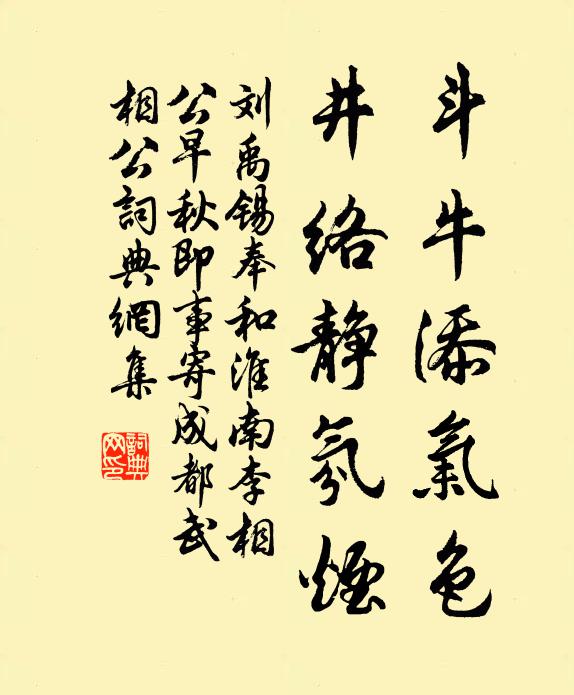 斗牛添氣色
井络静氛煙
刘禹锡奉和淮南李相
公早秋即事寄成都武
相公詞典網集
詞典网印